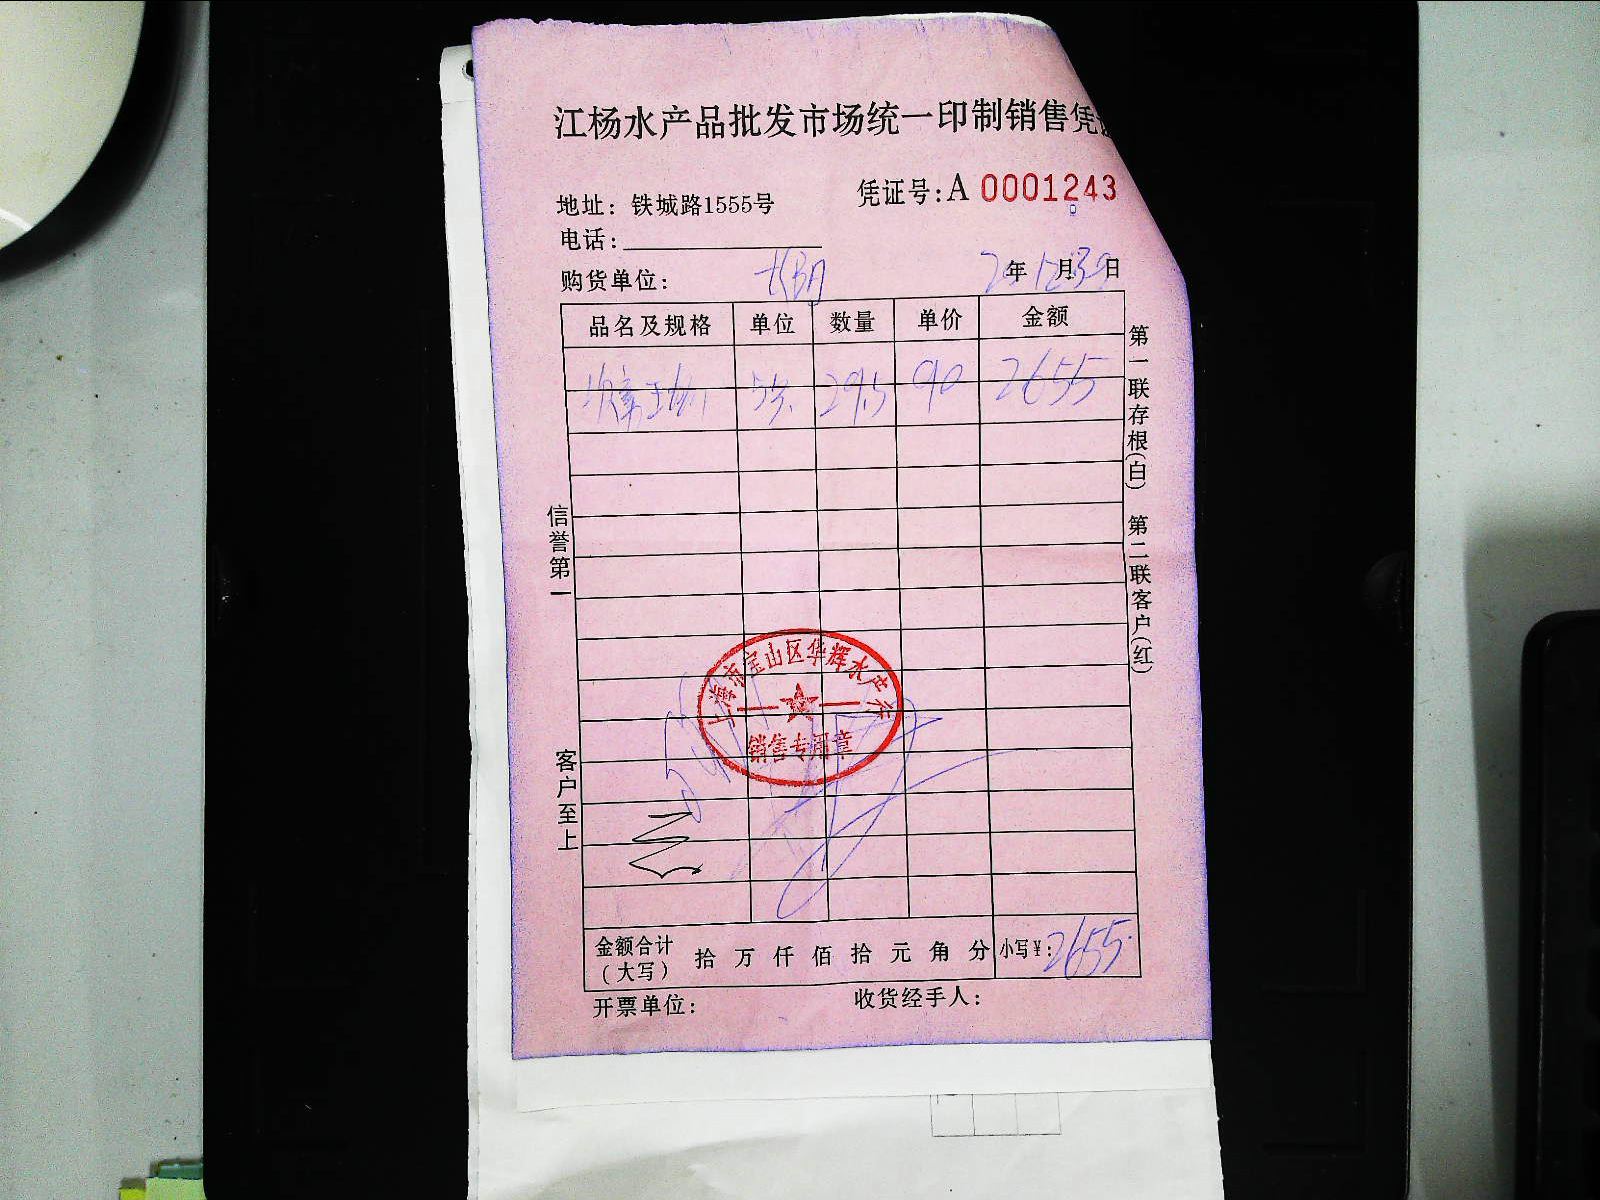 江杨水产品批发市场统一印制销售凭证
凭证号:A 0001243
地址: 铁城路1555号
电话:
购货单位:
年 12月30日
品名及规格 单位 数量 单价 金额
29.5 90 2655
第一联存根(白) 第二联客户(红)
信誉第一
客户至上
上海市宝山区华辉水产行
销售专用章
金额合计(大写) 拾 万 仟 佰 拾 元 角 分 小写¥:2655
开票单位: 收货经手人: